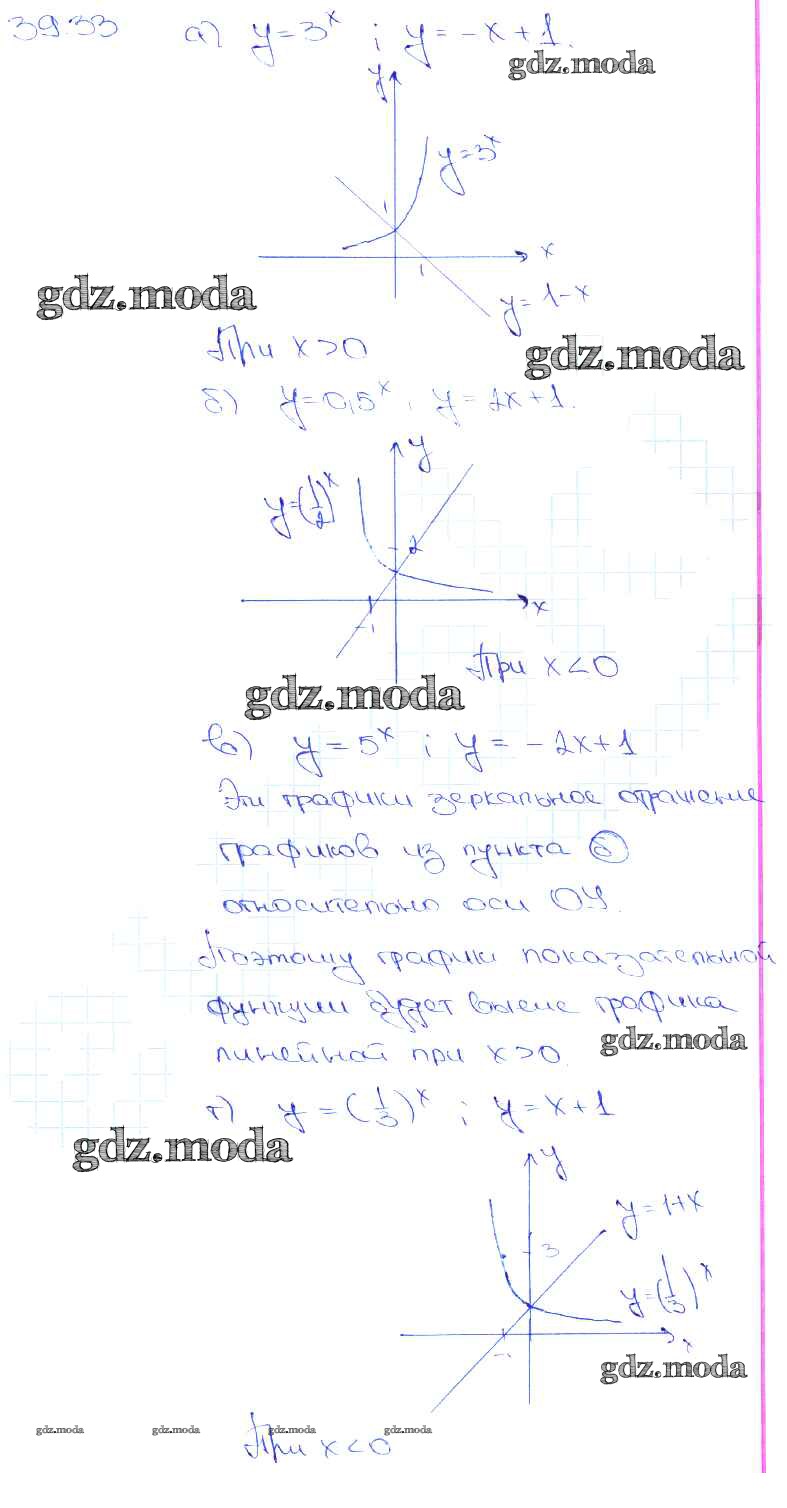 39.33 а) y=3^x ; y=-x+1.
gdz.moda
y
y=3^x
1
x
1
gdz.moda
y=1-x
При x>0
gdz.moda
б) y=0,5^x, y=2x+1.
y
y=(1/2)^x
2
x
-1
При x<0
gdz.moda
в) y=5^x ; y=-2x+1
Эти графики зеркальное отражение
графиков из пункта б
относительно оси OY.
Поэтому графики показательной
функции будет выше графика
линейной при x>0.
gdz.moda
г) y=(1/3)^x ; y=x+1
gdz.moda
y
y=1+x
3
y=(1/3)^x
x
-1
gdz.moda
gdz.moda gdz.moda gdz.moda gdz.moda
При x<0